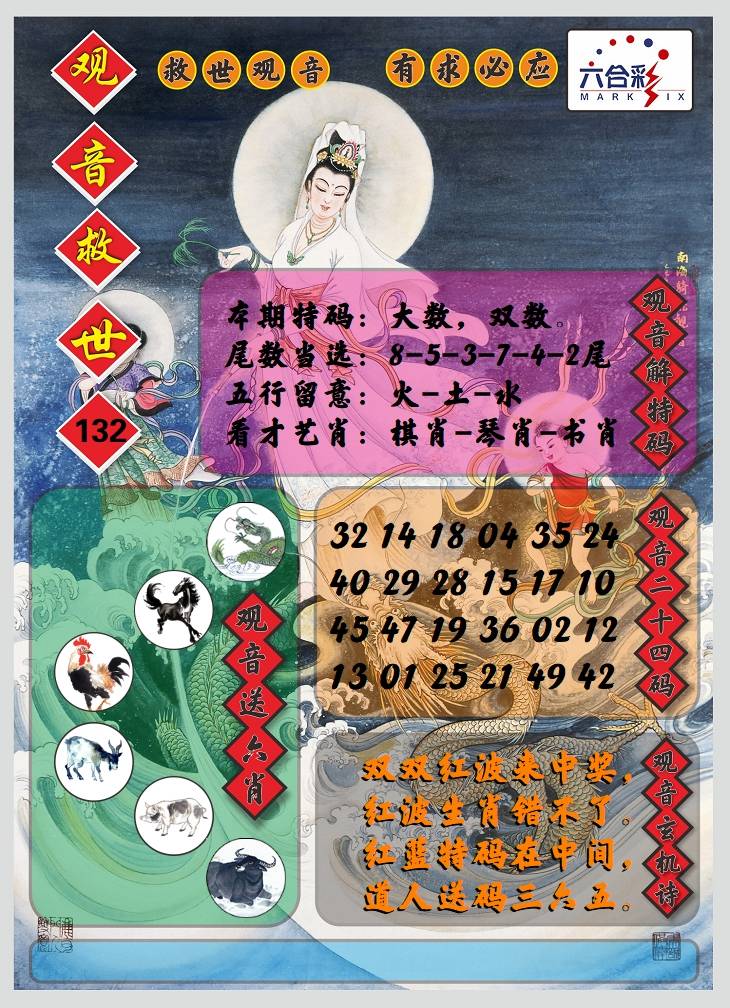 观音救世
132
救世观音 有求必应
六合彩
MARK SIX
观音解特码
本期特码：大数，双数。
尾数当选：8-5-3-7-4-2尾
五行留意：火-土-水
看才艺肖：棋肖-琴肖-书肖
观音二十四码
32 14 18 04 35 24
40 29 28 15 17 10
45 47 19 36 02 12
13 01 25 21 49 42
观音送六肖
观音玄机诗
双双红波来中奖，
红波生肖错不了。
红蓝特码在中间，
道人送码三六五。